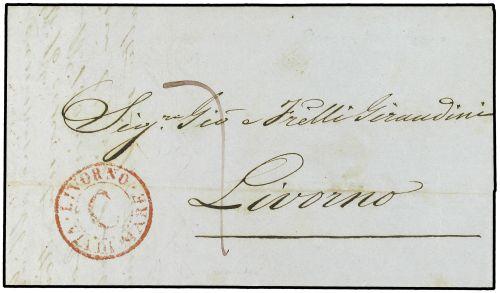 Sig.re Gio e Frelli Giraudini
Livorno
LIVORNO
VIA DI MARE
C